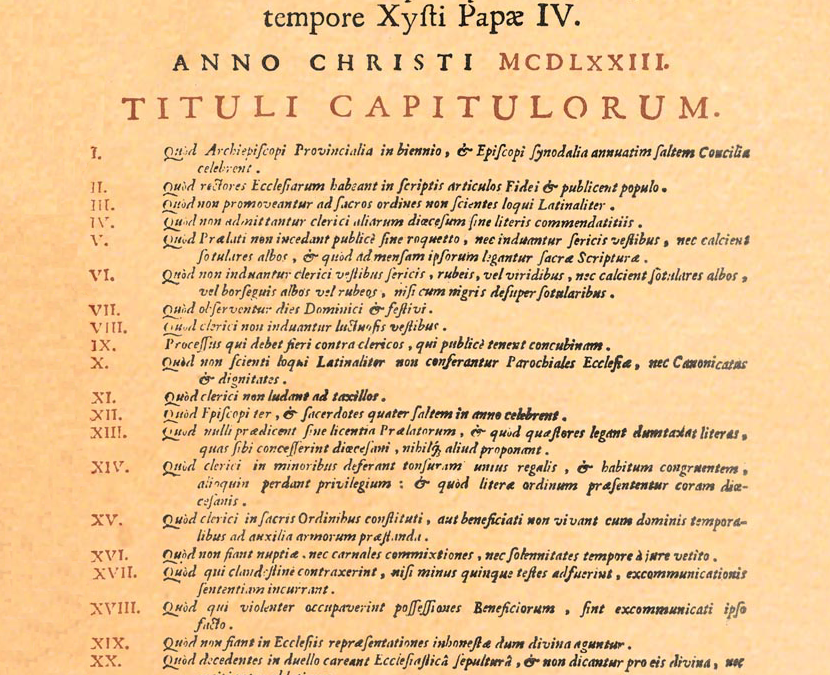 tempore Xyſti Papæ IV.
ANNO CHRISTI MCDLXXIII.
TITULI CAPITULORUM.
I. Quòd Archiepiſcopi Provincialia in biennio, & Epiſcopi ſynodalia annuatim ſaltem Concilia
celebrent.
II. Quòd rectores Eccleſiarum habeant in ſcriptis articulos Fidei & publicent populo.
III. Quòd non promoveantur ad ſacros ordines non ſcientes loqui Latinaliter.
IV. Quòd non admittantur clerici aliarum diœceſum ſine literis commendatitiis.
V. Quòd Prælati non incedant publicè ſine roquetto, nec induantur ſericis veſtibus, nec calcient
ſotulares albos, & quòd ad menſam ipſorum legantur ſacræ Scripturæ.
VI. Quòd non induantur clerici veſtibus ſericis, rubeis, vel viridibus, nec calcient ſotulares albos,
vel borſeguis albos vel rubeos, niſi cum nigris deſuper ſotularibus.
VII. Quòd obſerventur dies Dominici & feſtivi.
VIII. Quòd clerici non induantur luctuoſis veſtibus.
IX. Proceſſus qui debet fieri contra clericos, qui publicè tenent concubinam.
X. Quòd non ſcienti loqui Latinaliter non conferantur Parochiales Eccleſiæ, nec Canonicatus
& dignitates.
XI. Quòd clerici non ludant ad taxillos.
XII. Quòd Epiſcopi ter, & ſacerdotes quater ſaltem in anno celebrent.
XIII. Quòd nulli prædicent ſine licentia Prælatorum, & quòd quæſtores legant dumtaxat literas,
quas ſibi conceſſerint diœceſani, nihilq; aliud proponant.
XIV. Quòd clerici in minoribus deferant tonſuram unius regalis, & habitum congruentem,
alioquin perdant privilegium: & quòd literæ ordinum præſententur coram diœ-
ceſanis.
XV. Quòd clerici in ſacris Ordinibus conſtituti, aut beneficiati non vivant cum dominis tempora-
libus ad auxilia armorum præſtanda.
XVI. Quòd non fiant nuptiæ, nec carnales commixtiones, nec ſolennitates tempore à jure vetito.
XVII. Quòd qui clandeſtinè contraxerint, niſi minus quinque teſtes adfuerint, excommunicationis
ſententiam incurrant.
XVIII. Quòd qui violenter occupaverint poſſeſſiones Beneficiorum, ſint excommunicati ipſo
facto.
XIX. Quòd non fiant in Eccleſiis repræſentationes inhoneſtæ dum divina aguntur.
XX. Quòd decedentes in duello careant Eccleſiaſticâ ſepulturâ, & non dicantur pro eis divina, nec